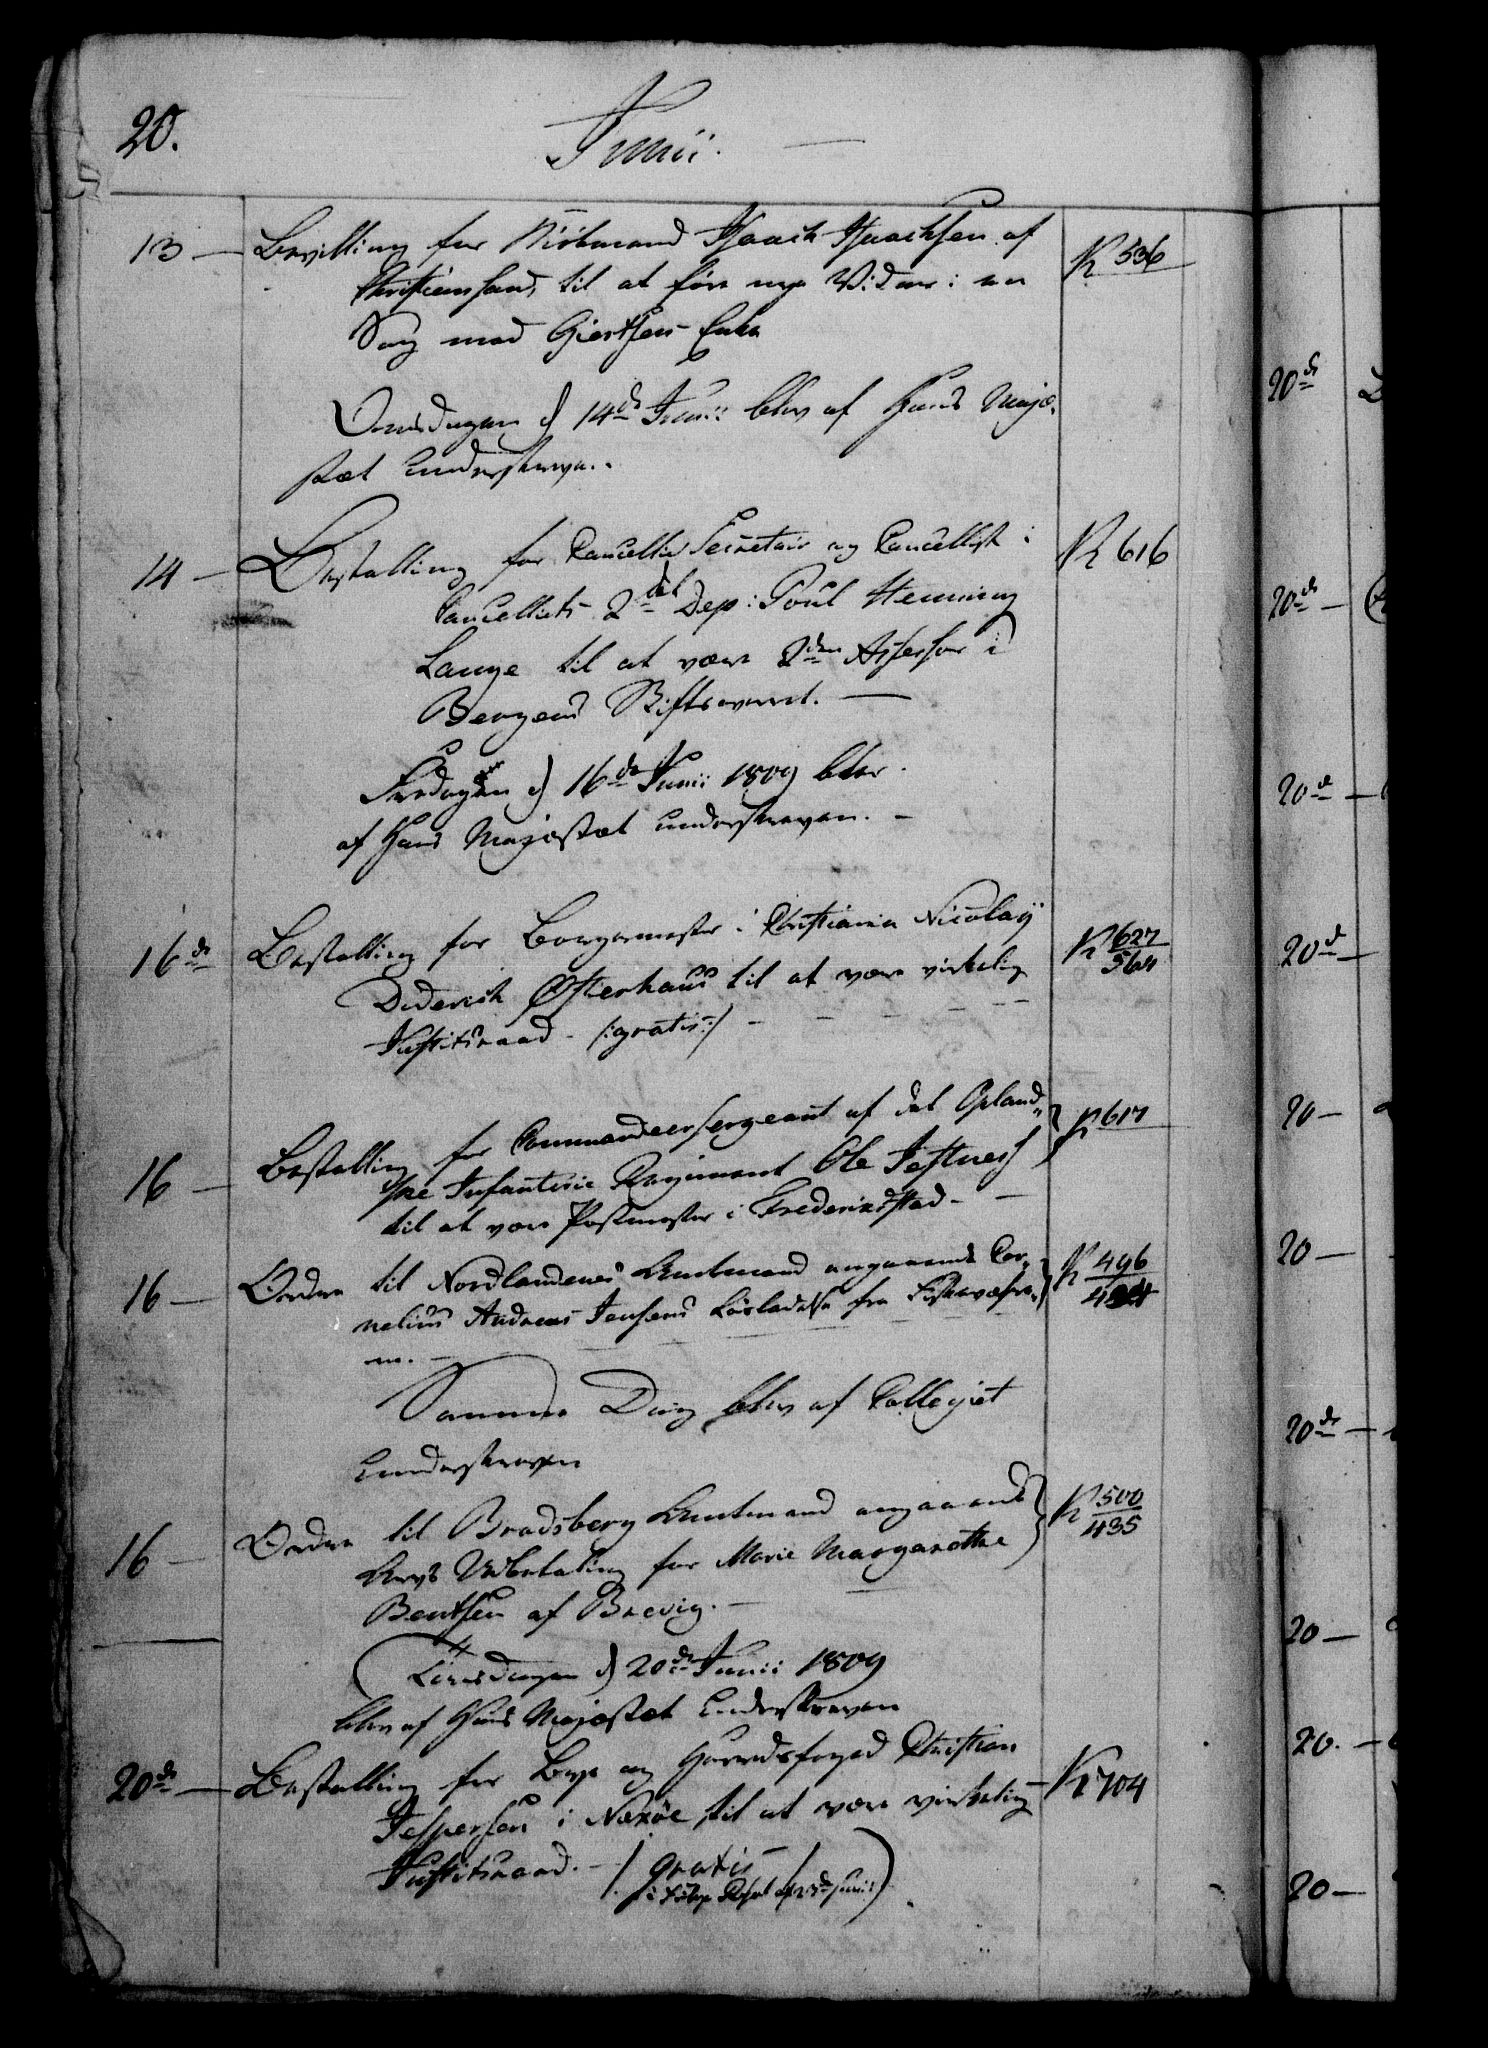 20.
Junii.
13 — Bevilling for Kiöbmand Isaach Isaachsen af K 536
Christiansand, til at føre nye Vidner i en
Sag mod Giertsens Enke
Onsdagen d 14de Junii blev af Hans Maje-
stæt underskreven.
14 — Bestalling for Cancellie Secretair og Cancellist i K 616
Cancelliets 2det Dep: Poul Henning
Lange til at være 2den Assessor i
Bergens Stiftsoverret. —
Fredagen d 16de Junii 1809 blev
af Hans Majestæt underskreven. —
16de Bestalling for Borgermester i Christiania Nicolaÿ K 627
564
Diderich Østerhaus til at være virkelig
Justitsraad — /:gratis:/ —
16 — Bestalling for Commandeersergeant af det Opland- K 617
ske Infanterie Regiment Ole
til at være Postmester i Fredericsstad —
16 — Ordre til Nordlandenes Amtmand angaaende Cor- K 496
nelius Andreas Jensens Løsladelse fra
Samme Dag blev af Collegiet
underskreven
16 — Ordre til Bradsberg Amtmand angaaende K 500
435
Arvs Udbetaling for Marie Margarethe
Bentsen af Brevig. —
Tirsdagen d 20de Junii 1809
blev af Hans Majestæt underskreven
20de — Bestalling for Bye og Herredsfoged Christian K 704
Jespersen i Nexöe, til at være virkelig
Justitsraad. — / gratis /
20de
20de —
20de —
20de —
20 —
20 —
20de —
20 —
20. —
20 —